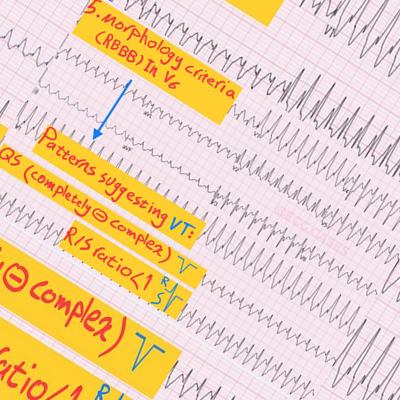 5. morphology criteria
(RBBB) In V6
Patterns suggesting VT:
QS (completely ⊖ complex)
R/S ratio <1 R S
⊖ complex)
ratio/1 R